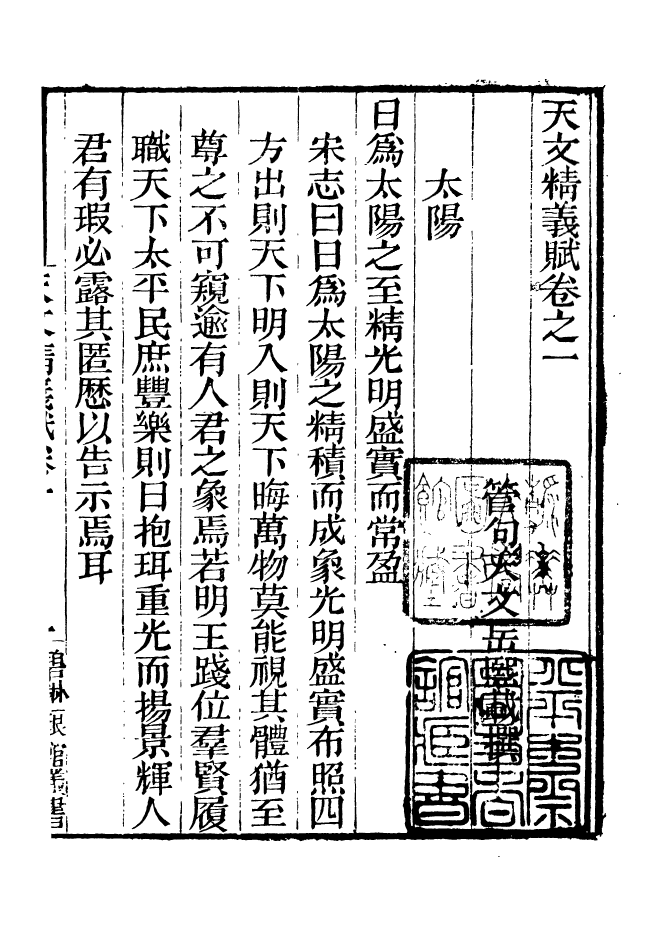 天文精義賦卷之一
管句天文岳熙載撰
太陽
日爲太陽之至精光明盛實而常盈
宋志曰日爲太陽之精積而成象光明盛實布照四
方出則天下明入則天下晦萬物莫能視其體猶至
尊之不可窺逾有人君之象焉若明王踐位羣賢履
職天下太平民庶豐樂則日抱珥重光而揚景輝人
君有瑕必露其匿歷以告示焉耳
天文精義賦卷一
一
碧琳琅館叢書